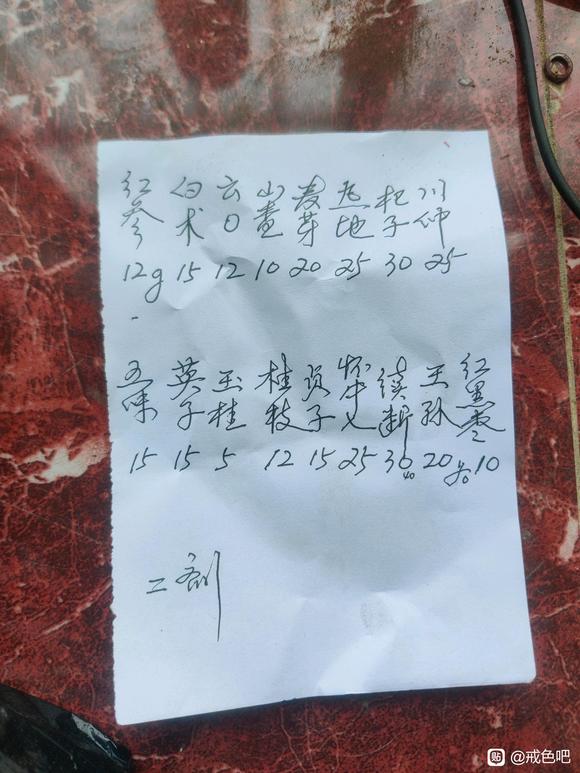 红参 白术 云O 山萸 麦芽 熟地 杞子 川仲
12g 15 12 10 20 25 30 25
五味 英子 玉桂 桂枝 怀牛七 续断 王孙 红黑枣
15 15 5 12 15 25 30 20 各10
40
二剂
贴 @戒色吧